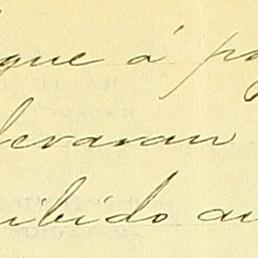 que á pa
levaran
ibido au